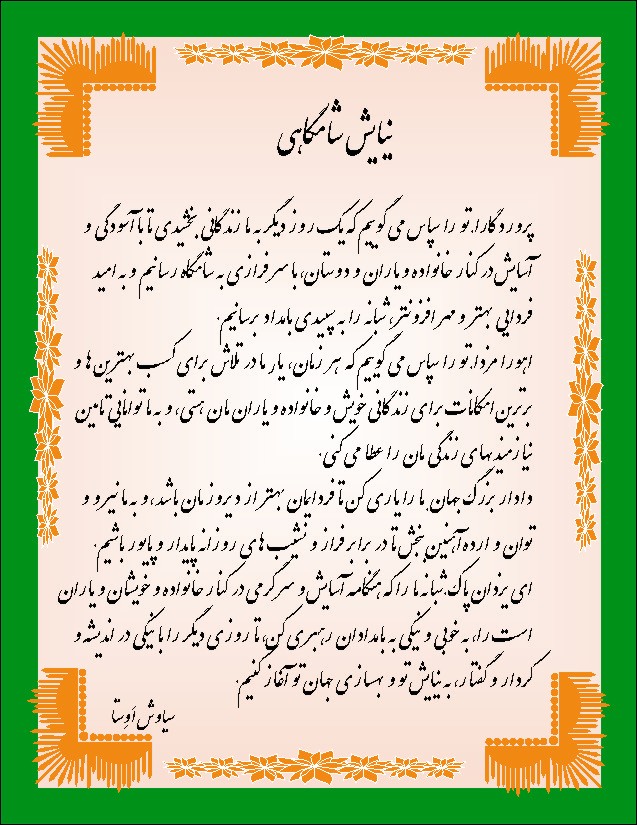 نیایش شامگاهی
پروردگارا. تو را سپاس می گوییم که یک روز دیگر به ما زندگانی بخشیدی تا با آسودگی و
آسایش در کنار خانواده و یاران و دوستان، با سرفرازی به شامگاه رسانیم و به امید
فردایی بهتر و مهر افزونتر، شبانه را به سپیدی بامداد برسانیم.
اهورا مزدا. تو را سپاس می گوییم که هر زمان، یار ما در تلاش برای کسب بهترین ها و
برترین امکانات برای زندگانی خویش و خانواده و یاران مان هستی، و به ما توانایی تامین
نیازمندیهای زندگی مان را عطا می کنی.
دادار بزرگ جهان. ما را یاری کن تا فردایمان بهتر از دیروزمان باشد، و به ما نیرو و
توان و اراده آهنین بخش تا در برابر فراز و نشیب های روزانه پایدار و پایور باشیم.
ای یزدان پاک. شبانه ما را که هنگامه آسایش و سرگرمی در کنار خانواده و خویشان و یاران
است را، به خوبی و نیکی به بامدادان رهبری کن، تا روزی دیگر را با نیکی در اندیشه و
کردار و گفتار، به نیایش تو و بهسازی جهان تو آغاز کنیم.
سیاوش اَوِستا